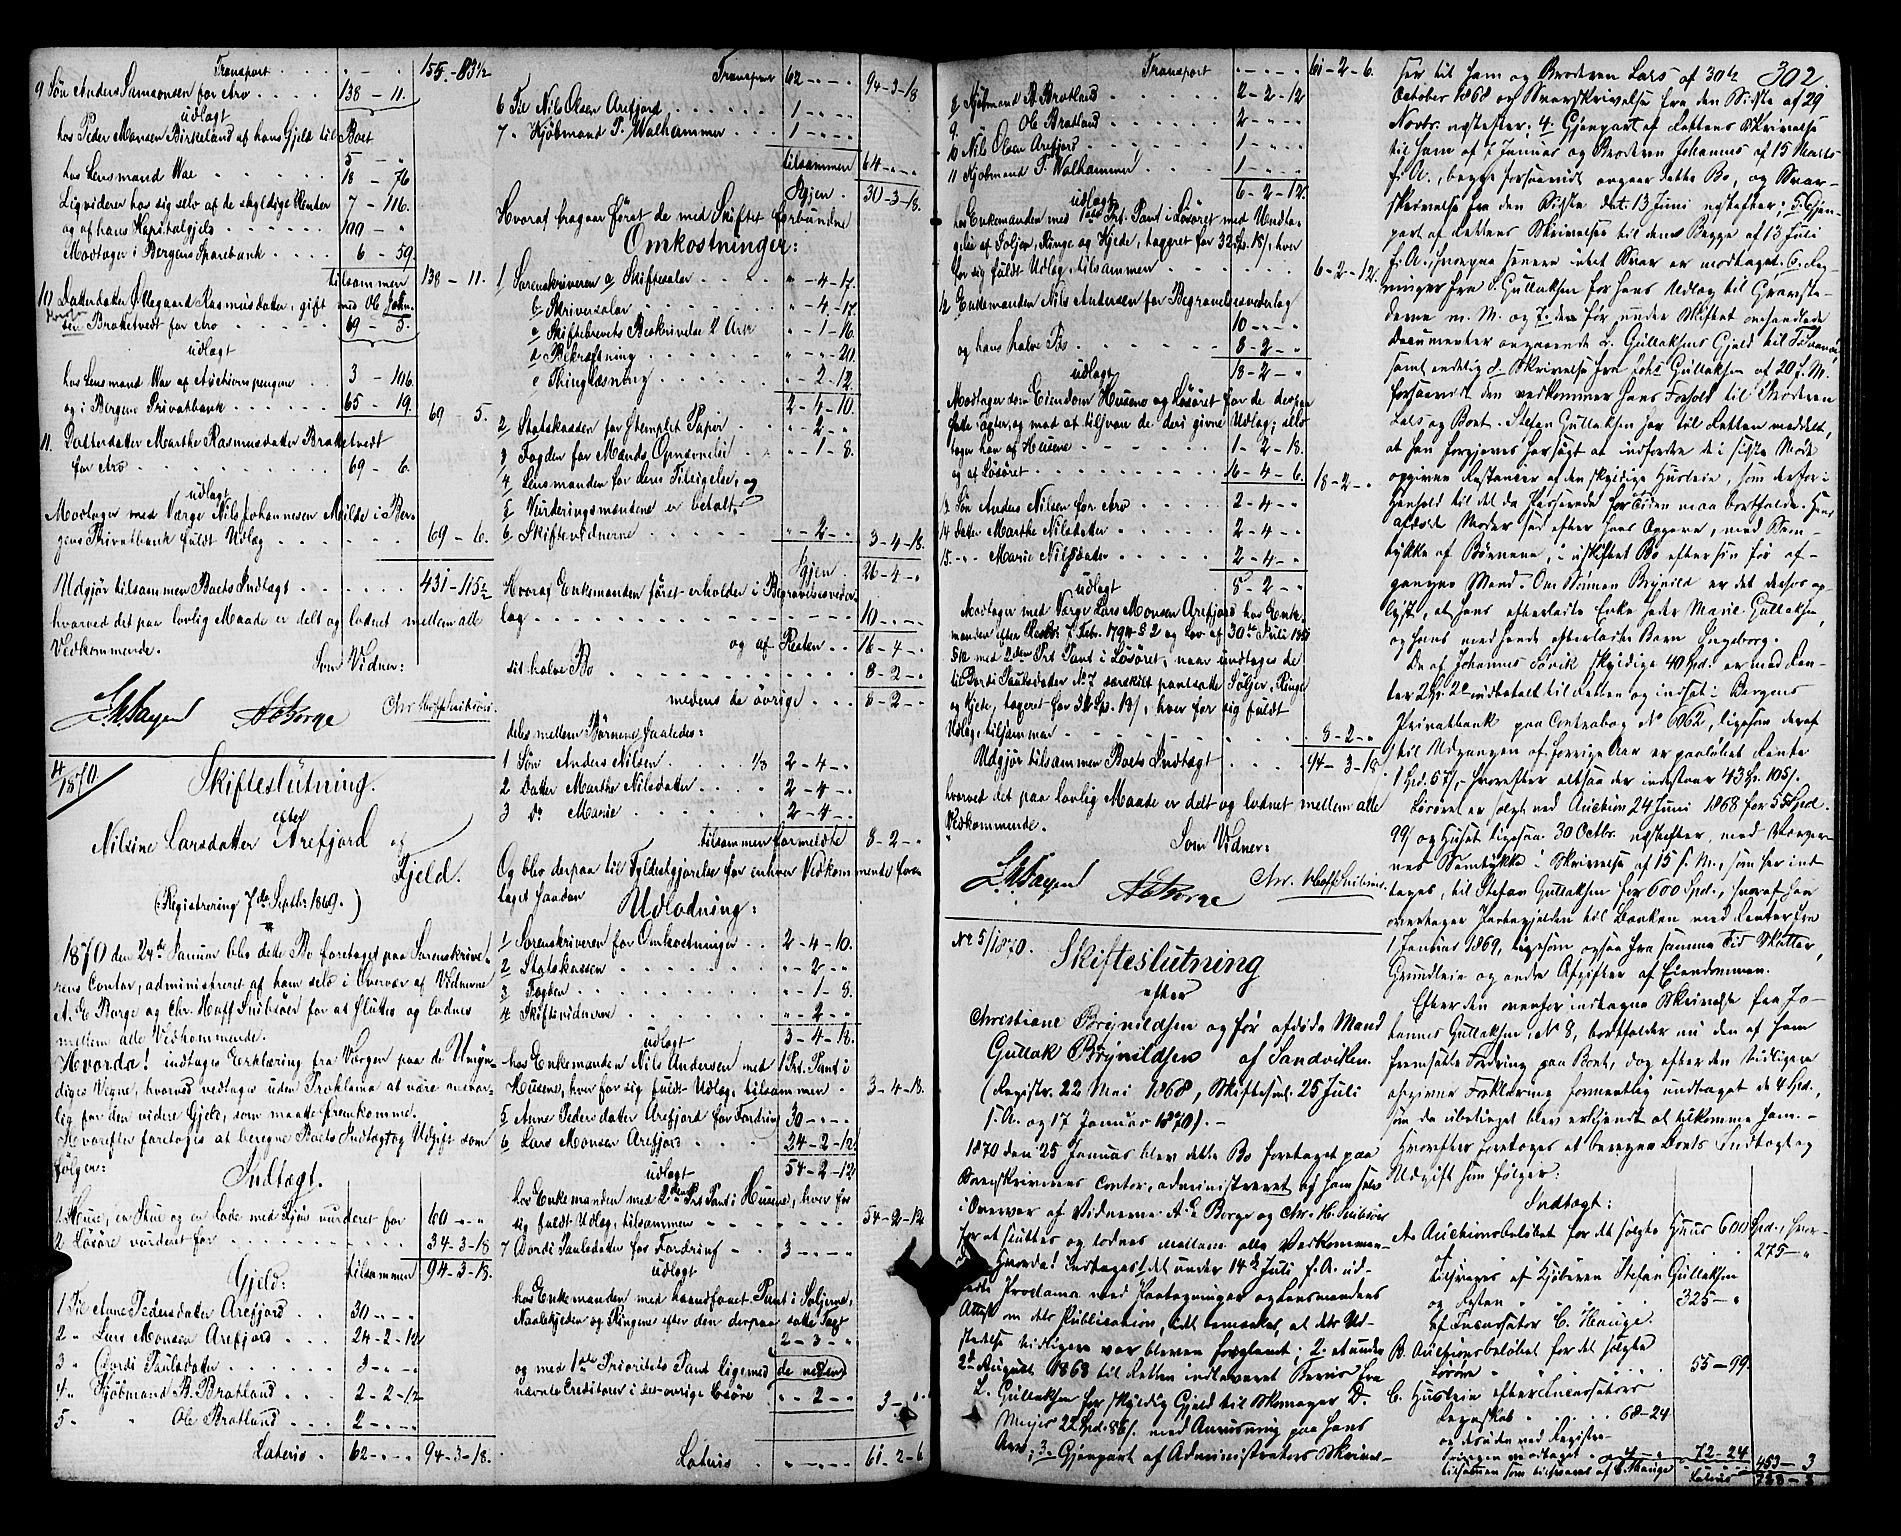 Transport . . . 155-83½
9 Søn Anders Samsonsen for Arv . . . 138 - 11.
udlagt
hos Peder Monsen Birkeland af hans Gjeld til Boet
5 - "
hos Lensmand Wae . . . 18 - 76
Ligviderer hos sig selv af de skyldige Renter 7 - 116.
og af hans Kapitalgjeld . . . 100 - "
Modtager i Bergens Sparebank . . . 6 - 59
tilsammen 138 - 11.
10 Datterdatter Øllegaard Rasmusdatter, gift med Ole Johnsen Braketvedt for Arv . . . 69 - 5.
udlagt
hos Lensmand Wae af Auctionspengene . . 3 - 106.
og i Bergens Privatbank . . . 65 - 19. 69 - 5.
11. Datterdatter Marthe Rasmusdatter Braketvedt
for Arv . . . 69 - 6.
udlagt
Modtager med Værge Nils Johannesen Milde i Ber-
gens Privatbank fuldt Udlæg . . . 69 - 6.
Udgjør tilsammen Boets Indtægt . . . 431-115½
hvorved det paa lovlig Maade er delt og lodnet mellem alle
Vedkommende.
Som Vidner:
A E Borge Chr. Hoff Snibsøer
4/1870
Skifteslutning
efter
Nilsine Larsdatter Arefjord af
Fjeld.
(Registrering 7de Septbr. 1869.)
1870 den 24de Januar blev dette Bo foretaget paa Sorenskrive-
rens Contor, administreret af ham selv i Overvær af Vidnerne
A. E Borge og Chr. Hoff Snibsöer for at sluttes og lodnes
mellem alle Vedkommende.
Hvorda! indtages Erklæring fra Værgen paa de Umyn-
diges Vegne, hvorved vedtages uden Proklama at være ansvar-
lig for den videre Gjeld, som maatte fremkomme.
Hvorefter foretages at beregne Boets Indtægt og Udgift som
følger:
Indtægt.
1. Huse, en Stue og en Lade med Fjøs vurderet for 60 - " - "
2 Løsøre vurderet for . . . 34 - 3 - 18
tilsammen 94 - 3 - 18.
Gjeld:
1 Til Anne Pedersdatter Arefjord . . 30 - " - "
2 " Lars Monsen Arefjord . . . 24 - 2 - 12
3 " Dordi Paulsdatter . . . 3 - " - "
4 " Kjøbmand B. Bratland . . . 2 - 2 - 12
5 " " Ole Bratlund . . . 2 - " - "
Lateris . 62 - " - " 94 - 3 - 18.
Transport 62 - " - " 94 - 3 - 18
6 Til Nils Olsen Arefjord . . . 1 - " - "
7 " Kjøbmand P. Walhammer . . . 1 - " - "
tilsammen 64 - " - "
Igjen . 30 - 3 - 18.
Hvoraf fragaar først de med Skiftet forbundne
Omkostninger:
1 Sorenskriveren a Skiftesalær . . " - 4 - 17.
b Skriversalær . . " - 4 - 17.
c Skiftebrevets Beskrivelse 2 Ark " - 1 - 16.
d Bekræftning . . . " - " - 20.
e Thinglæsning . . . " - 2 - 12.
2 - 4 - 10.
2 Statskassen for Stemplet Papir . . " - 2 - "
3 Fogden for Mands Opnævnelse . . " - 1 - 8.
4 Lensmanden for Deres Tilsigelse, og
5 Vurderingsmændene er betalt
6 Skiftevidnerne . . . " - 2 - " 3 - 4 - 18.
Igjen 26 - 4 - "
Hvoraf Enkemanden først erholder i Begravelsesveder-
lag . . . 10 - " - "
og af Resten . . 16 - 4 - "
sit halve Bo . . . 8 - 2 - "
medens de øvrige . . . 8 - 2 - "
deles mellem Børnene saaledes:
1 Søn Anders Nilsen . . . 1/3 2 - 4 - "
2 Datter Marthe Nilsdatter . . . 2 - 4 - "
3 do Marie . . . 2 - 4 - "
tilsammen formeldte 8 - 2 - "
Og blev derpaa til Fyldestgjørelse for enhver Vedkommende fore-
taget saadan
Udlodning:
1 Sorenskriveren for Omkostninger . . 2 - 4 - 10.
2 Statskassen . . . " - 2 - "
3 Fogden . . . " - 1 - 8.
4 Skiftevidnerne . . . " - 2 - "
udlagt 3 - 4 - 18.
hos Enkemanden Nils Andersen med 1 Prt. Pant i
Husene, hver for sig fuldt Udlæg, tilsammen . 3 - 4 - 18.
5 Anne Pedersdatter Arefjord for Fordring 30 - " - "
6 Lars Monsen Arefjord . . . 24 - 2 - 12.
udlagt 54 - 2 - 12
hos Enkemanden med 2den Prt. Pant i Husene, hver for
sig fuldt Udlæg, tilsammen . . . 54 - 2 - 12
7 Dordi Paulsdatter for Fordring . . 3 - " - "
udlagt
hos Enkemanden med haandfaaet Pant i Søljerne,
Naalekjeden og Ringene efter den derpaa satte Taxt
2 - 3 - "
og med 1ste Prioritets Pant ligemed de neden
nævnte Creditorer i det øvrige Løsøre " - 2 - " 3 - " - "
Lateris . " - " - " 61 - 2 - 6
Transport . . . 61 - 2 - 6.
8 Kjøbmand B. Bratland . . . 2 - 2 - 12
9. Ole Bratland . . . 2 - " - "
10 Nils Olsen Arefjord . . . 1 - " - "
11 Kjøbmand P. Walhammer . . . 1 - " - "
udlagt 6 - 2 - 12.
hos Enkemanden med 1ste Prt. Pant i Løsøret med Undta-
gelse af Soljer, Ringe og Kjede, taxeret for 32 Sp. 18/, hver
for sig fuldt Udlæg, tilsammen . . . 6 - 2 - 12.
12 Enkemanden Nils Andersen for Begravelsesvederlag
10 - " - "
og hans halve Bo . . . 8 - 2 - "
udlagt 18 - 2 - "
Modtager som Eiendom Husene og Løsøret for de derpaa
satte Taxter, og mod at tilsvare de deri givne Udlæg; selv
tager han af Husene . . . 1 - 2 - 18.
og af Løsøret . . . 16 - 4 - 6. 18 - 2 - "
13 Søn Anders Nilsen for Arv . . . 2 - 4 - "
14 Datter Marthe Nilsdatter . . . 2 - 4 - "
15. " Marie Nilsdatter . . . 2 - 4 - "
udlagt 8 - 2 - "
Modtager med Værge Lars Monsen Arefjord hos Enke-
manden efter Reskr. 7 Febr. 1794 § 2 og Lov af 30te Juli 1851
§ 12 med 2den Prt. Pant i Løsøret, naar undtages de
til Dordi Paulsdatter No 7 særskilt pantsatte Søljer, Ringe
og Kjede, taxeret for 32 Sp. 18/, hver for sig fuldt
Udlæg tilsammen . . . 8 - 2 - "
Udgjør tilsammen Boets Indtægt . . . 94 - 3 - 18.
hvorved det paa lovlig Maade er delt og lodnet mellem alle
Vedkommende.
Som Vidner:
A E Borge Chr. Hoff Snibsøer
No 5/1870. Skifteslutning
efter
Christiane Brynildsen og før afdøde Mand
Gullak Brynildsen af Sandviken.
(Registr. 22 Mai 1868, Skiftesml. 25 Juli
s. A. og 17 Januar 1870). -
1870 den 25 Januar blev dette Bo foretaget paa
Sorenskriverens Contor, administreret af ham selv
i Overvær af Vidnerne A. E Borge og Chr. H. Snibsøer
for at sluttes og lodnes mellem alle Vedkommen-
de. Hvorda! indtages 1. det under 14de Juli f. A. ud-
stedte Proclama med Paategninger og Lensmandens
Attest om dets Publication, idet bemærkes, at dets Ud-
stedelse tidligere var bleven forglemt; 2. et under
2den August 1868 til Retten indleveret Bevis fra
L. Gullaksen for skyldig Gjeld til Skomager D.
Meyer 22 Spd. 86/. med Anvisning paa hans
Arv; 3. Gjenpart af Administrators Skrivel-
302.
ser til ham og Broderen Lars af 30te
October 1868 og Svarskrivelse fra den Sidste af 29
Novbr. næstefter; 4. Gjenpart af Rettens Skrivelse
til ham af 7 Januar og Broderen Johannes af 15 Marts
f. A., begge forsaavidt angaar dette Bo, og Svar-
skrivelse fra den Sidste dat. 13 Juni næstefter; 5. Gjen-
part af Rettens Skrivelse til dem Begge af 13 Juli
f. A., hvorpaa senere intet Svar er modtaget, 6. Reg-
ninger fra S. Gullaksen for hans Udlæg til Gravste-
derne m. M. og 7. de før under Skiftet omhandlede
Documenter angaaende L. Gullaksens Gjeld til
samt endelig 8 Skrivelse fra Johs Gullaksen af 20 f. M.
forsaavidt den vedkommer hans Forhold til Broderen
Lars og Boet. Stefan Gullaksen har til Retten meddelt,
at han forgjæves har søgt at indfordre de i sidste Møde
opgivne Restancer af den skyldige Husleie, som derfor i
Henhold til det da Passerede for Tiden maa bortfalde. Hans
afdøde Moder sad efter hans Opgave, med Sam-
tykke af Børnene, i uskiftet Bo efter sin før af-
gangne Mand. Om Sønnen Brynild er det derhos op-
lyst, at hans efterladte Enke heder Marie Gullaksen,
og hans med hende efterladte Barn Ingeborg.
De af Johannes Søvik skyldige 40 Spd. er med Ren-
ter 2 Sp. 2/ indbetalt til Retten og indsat i Bergens
Privatbank paa Contrabog No 6062, ligesom deraf
til Udgangen af forrige Aar er paaløbet Rente
1 Spd. 57/, hvorefter altsaa der indestaar 43 Sp. 105/.
Løsøret er solgt ved Auction 24 Juni 1868 for 55 Spd.
99/ og Huset ligesaa 30 Octbr. næstefter, med Værger-
nes Samtykke i Skrivelse af 15 s. M., som her ind-
tages, til Stefan Gullaksen for 600 Spd., hvoraf han
overtager Pantegjelden til Banken med Renter fra
1 Januar 1869, ligesom ogsaa fra samme Tid Skatter,
Grundleie og andre Afgifter af Eiendommen.
Efter den ovenfor indtagne Skrivelse fra Jo-
hannes Gullaksen No 8, bortfalder nu den af ham
fremsatte Fordring paa Boet, dog efter den tidligere
afgivne Forklaring formentlig undtaget de 4 Spd.,
som da ubetinget blev erkjendt at tilkomme ham. -
Hvorefter foretoges at beregne Boets Indtægt og
Udgift som følger:
Indtægt:
A. Auctionsbeløbet for det solgte Huus 600 Spd., hvor-
af 275 - "
tilsvares af Kjøberen Stefan Gullaksen
og Resten . . . 325 - "
af Incassator C. Hauge.
B. Auctionsbeløbet for det solgte
Løsøre . . . 55 - 99.
C. Husleie efter Incassators
Regnskab . . . 68 - 24
og desuden ved Registre-
ringen modtaget . 4 - " 72 - 24
tilsammen som tilsvares af C. Hauge 453 - 3
Lateris 728 - 3